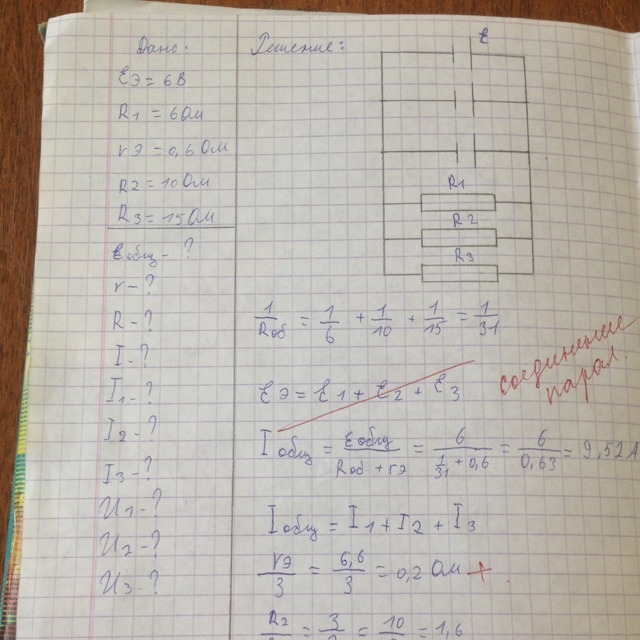 Дано:
Ɛэ = 6В
R1 = 6Ом
rэ = 0,6Ом
R2 = 10Ом
R3 = 15Ом
Ɛобщ - ?
r - ?
R - ?
I - ?
I1 - ?
I2 - ?
I3 - ?
U1 - ?
U2 - ?
U3 - ?
Решение:
Ɛ
R1
R2
R3
1/Rоб = 1/6 + 1/10 + 1/15 = 1/31
Ɛэ = Ɛ1 + Ɛ2 + Ɛ3
соединение
парал.
Iобщ = Ɛобщ/(Rоб + rэ) = 6/(1/31 + 0,6) = 6/0,63 = 9,52А
Iобщ = I1 + I2 + I3
rэ/3 = 6,6/3 = 0,2 Ом +